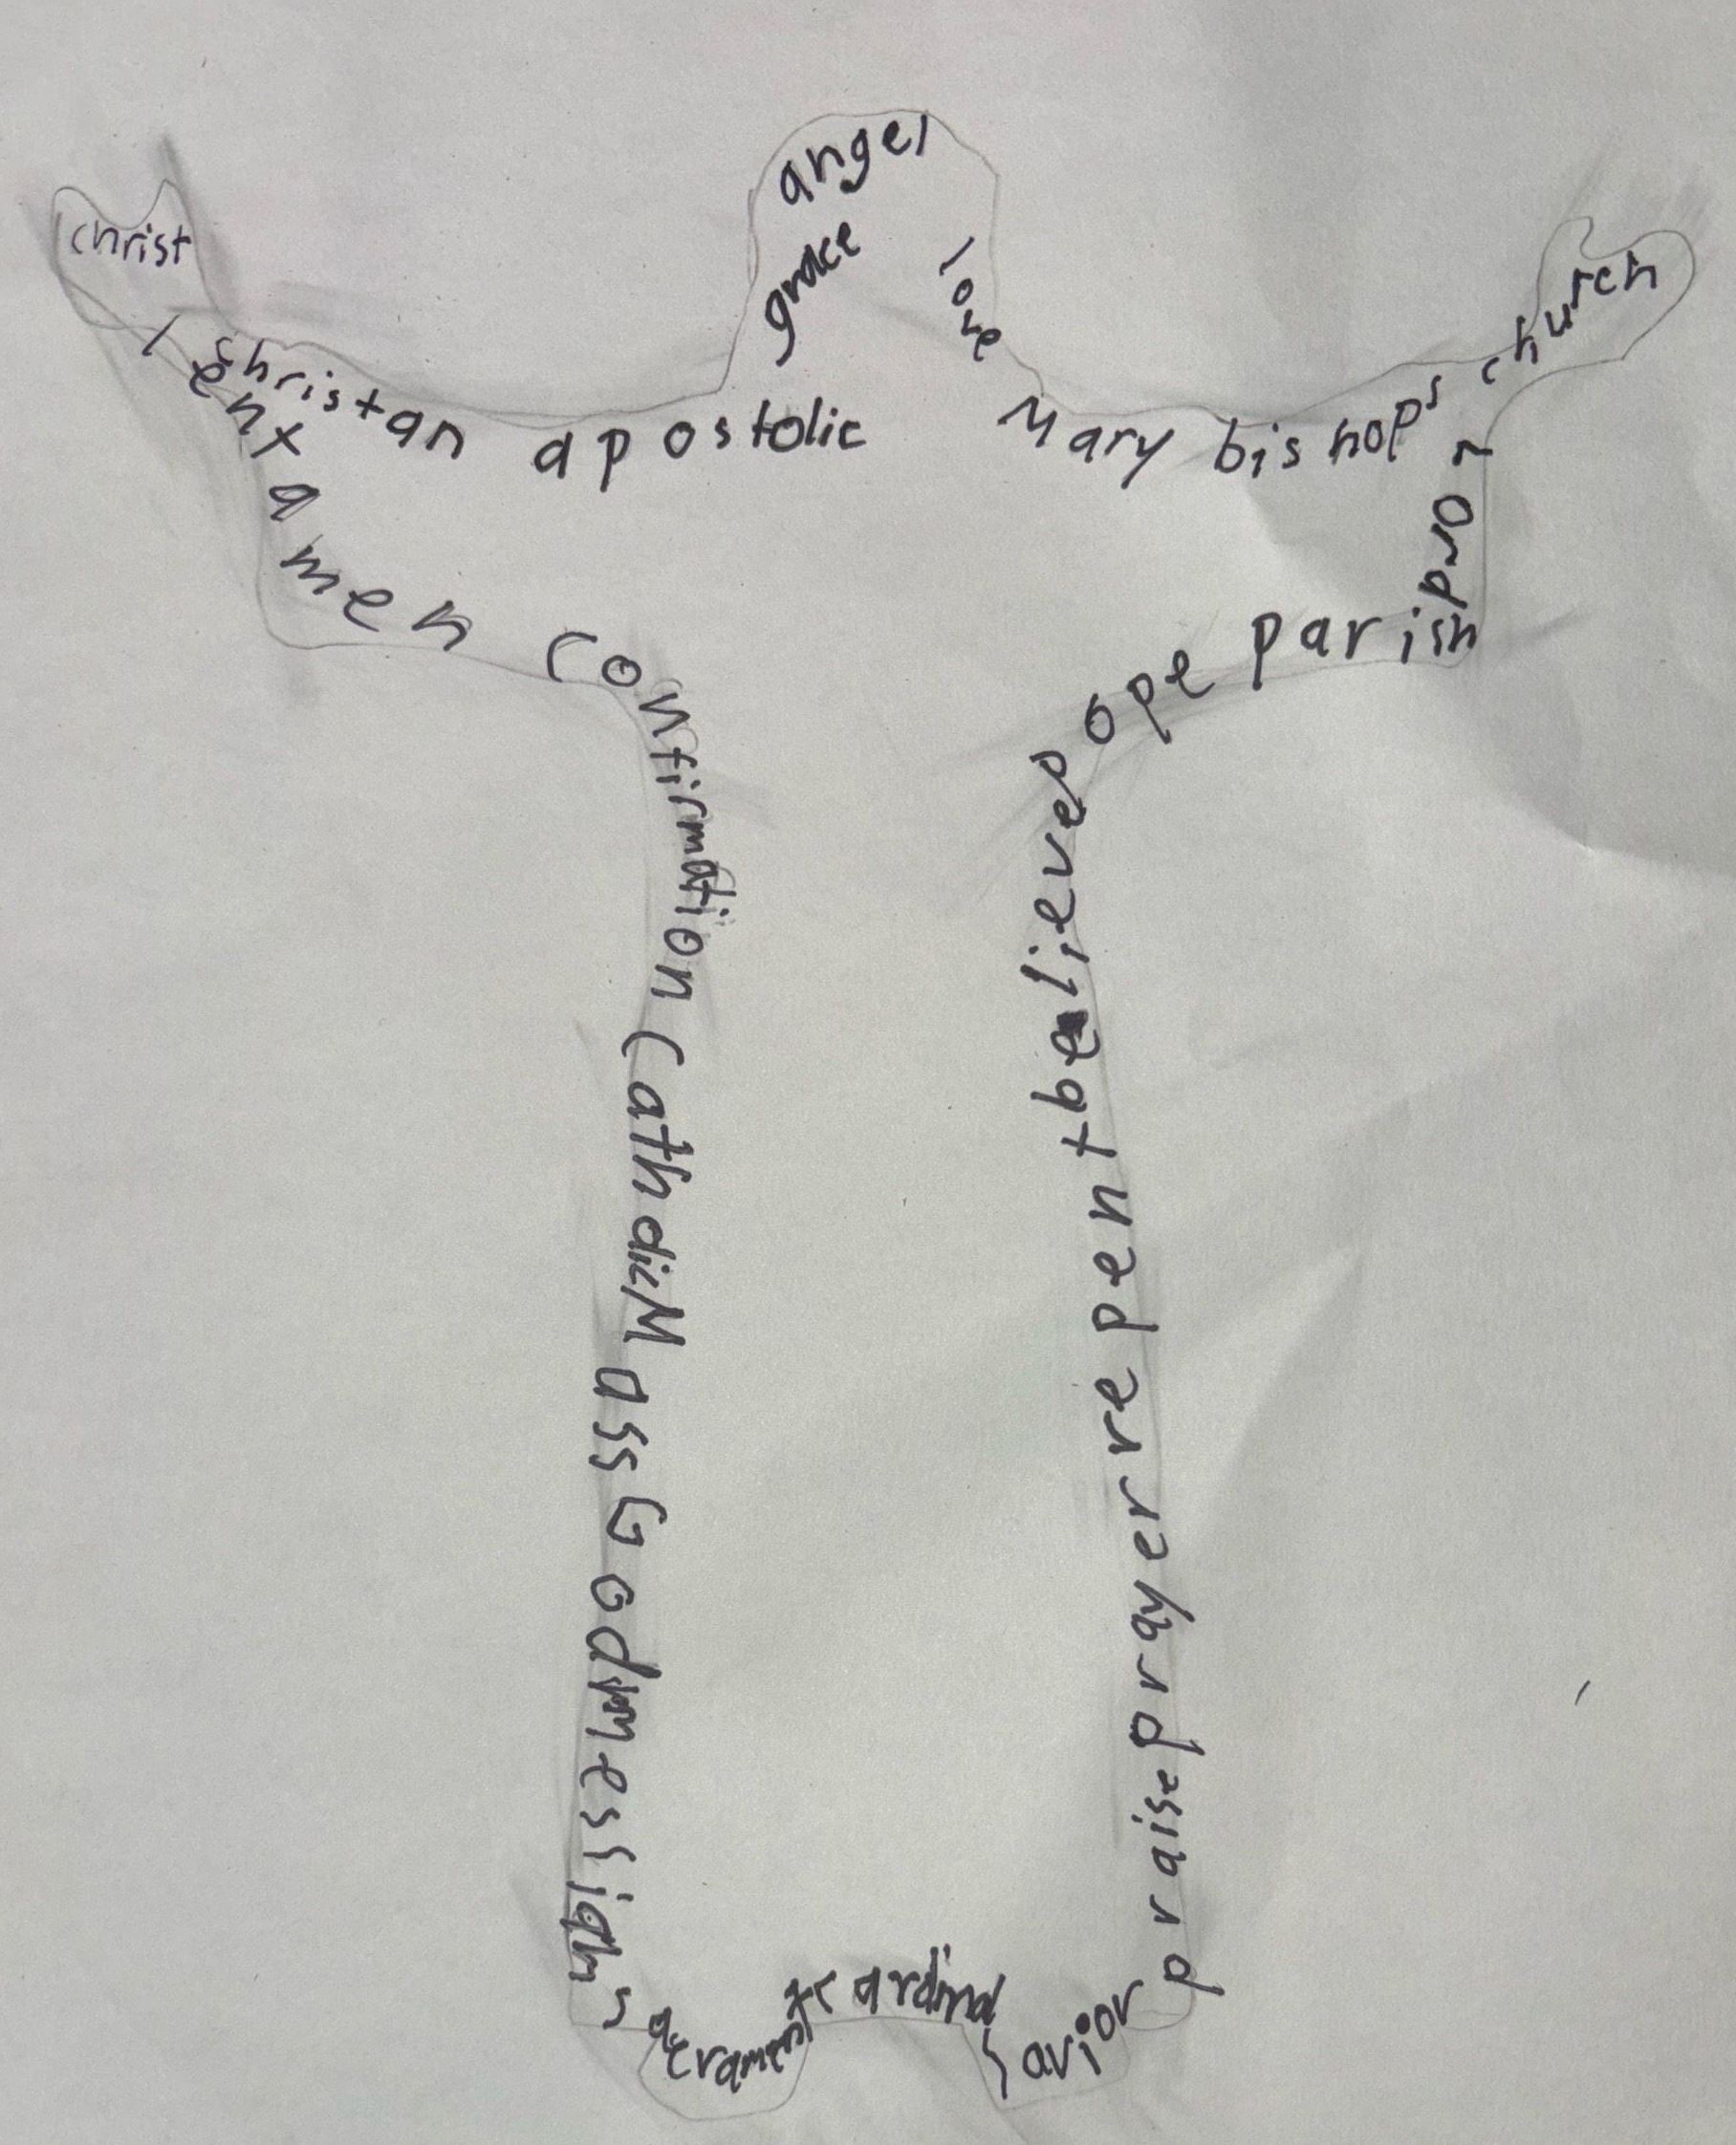 angel
grace
love
christ
christan
apostolic
Mary
bishops
church
Lord
parish
ope
believe
repent
prayer
praise
Savior
cardinal
sacrament
messiah
God
Mass
Catholic
Confirmation
amen
lent